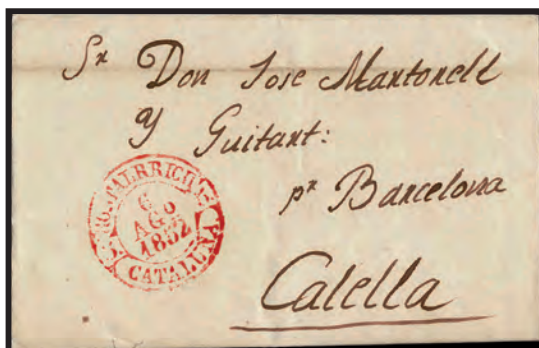 Sr Don Jose Martorell
y Guitart:
pr Barcelona
Calella
6
AGO
1852
CATALUÑA